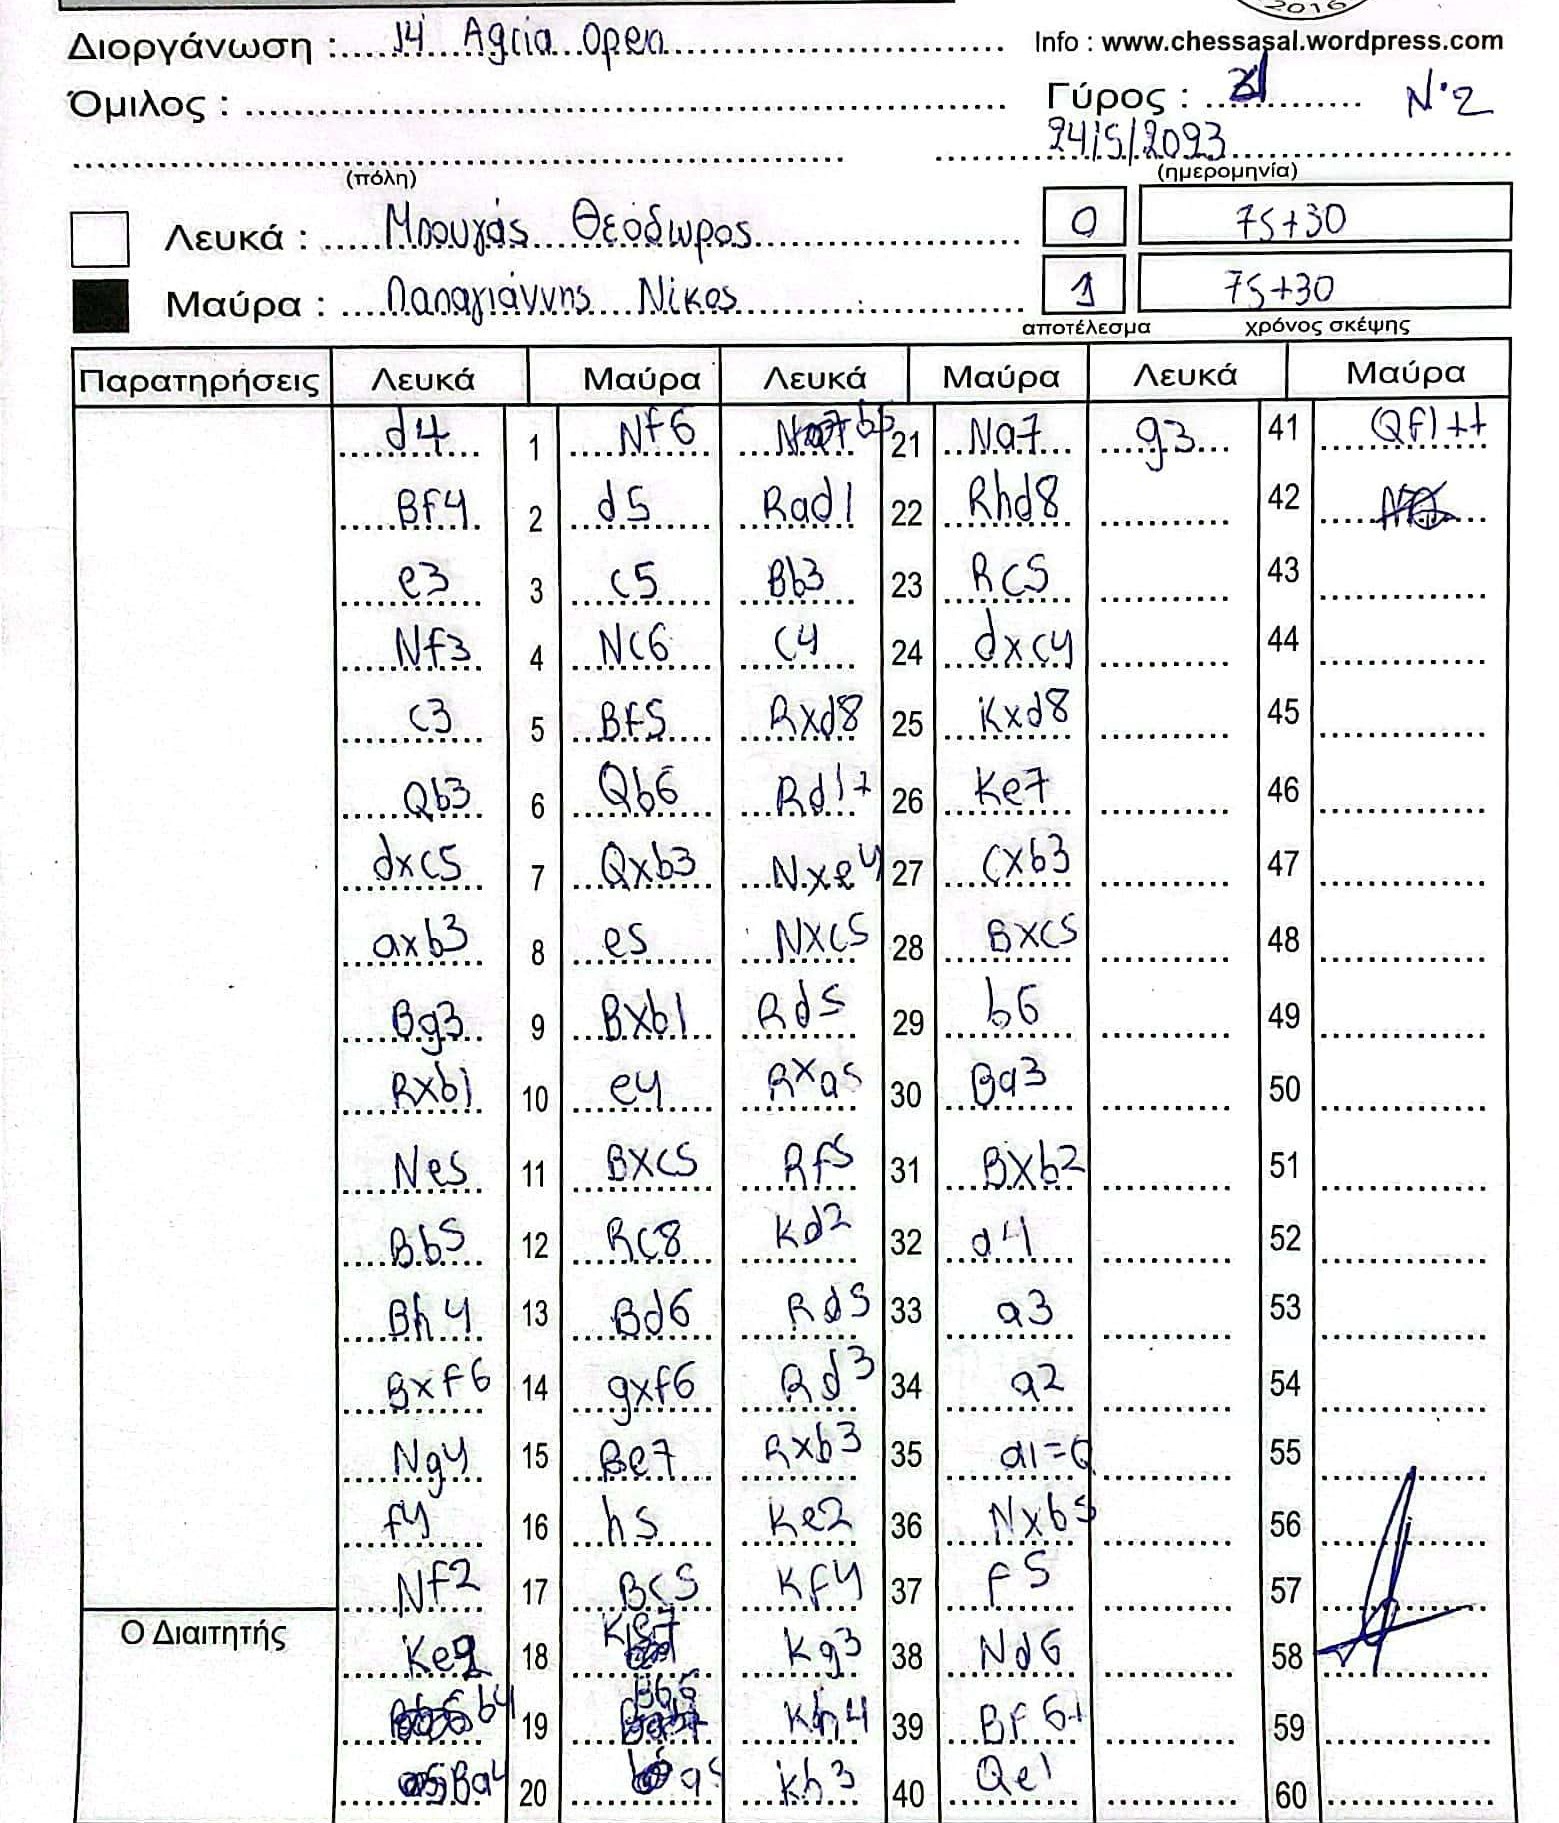 2016
Διοργάνωση : 14 Agria open Info : www.chessasal.wordpress.com
Όμιλος : Γύρος : N°2
24/5/2023
(πόλη) (ημερομηνία)
Λευκά : Μπουγάς Θεόδωρος 0 75+30
Μαύρα : Παπαγιάννης Νίκος 1 75+30
αποτέλεσμα χρόνος σκέψης
Παρατηρήσεις Λευκά Μαύρα Λευκά Μαύρα Λευκά Μαύρα
d4 1 Nf6 b5 21 Na7 g3 41 Qf1++
Bf4 2 d5 Rad1 22 Rhd8 42
e3 3 c5 Bb3 23 Rc5 43
Nf3 4 Nc6 c4 24 dxc4 44
c3 5 Bf5 Rxd8 25 Kxd8 45
Qb3 6 Qb6 Rd1+ 26 Ke7 46
dxc5 7 Qxb3 Nxe4 27 cxb3 47
axb3 8 e5 Nxc5 28 Bxc5 48
Bg3 9 Bxb1 Rd5 29 b6 49
Rxb1 10 e4 Rxa5 30 Ba3 50
Ne5 11 Bxc5 Rf5 31 Bxb2 51
Bb5 12 Rc8 Kd2 32 a4 52
Bh4 13 Bd6 Rd5 33 a3 53
Bxf6 14 gxf6 Rd3 34 a2 54
Ng4 15 Be7 Rxb3 35 a1=Q 55
f4 16 h5 Ke2 36 Nxb5 56
Nf2 17 Bc5 Kf4 37 f5 57
Ο Διαιτητής Ke2 18 Ke7 Kg3 38 Nd6 58
b4 19 Bb6 Kh4 39 Bf6+ 59
Ba4 20 a5 Kh3 40 Qe1 60